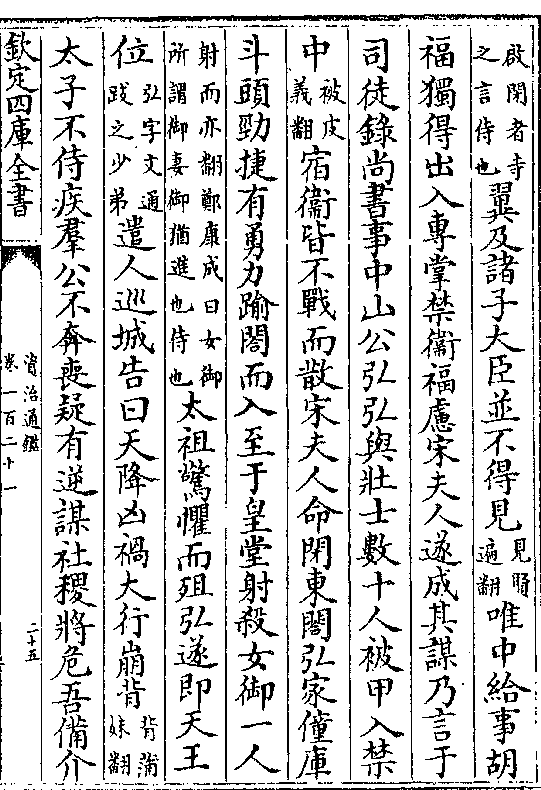 啟閉者寺
之言侍也
翼及諸子大臣並不得見
見賢
遍翻
唯中給事胡
福獨得出入專掌禁衞福慮宋夫人遂成其謀乃言于
司徒錄尚書事中山公弘弘與壯士數十人被甲入禁
中
被皮
義翻
宿衞皆不戰而散宋夫人命閉東閤弘家僮庫
斗頭勁捷有勇力踰閤而入至于皇堂射殺女御一人
射而亦翻鄭康成曰女御
所謂御妻御猶進也侍也
太祖驚懼而殂弘遂即天王
位
弘字文通
跋之少弟
遣人巡城告曰天降凶禍大行崩背
背蒲
妹翻
太子不侍疾羣公不奔喪疑有逆謀社稷將危吾備介
欽定四庫全書
資治通鑑
卷一百二十一
二十五